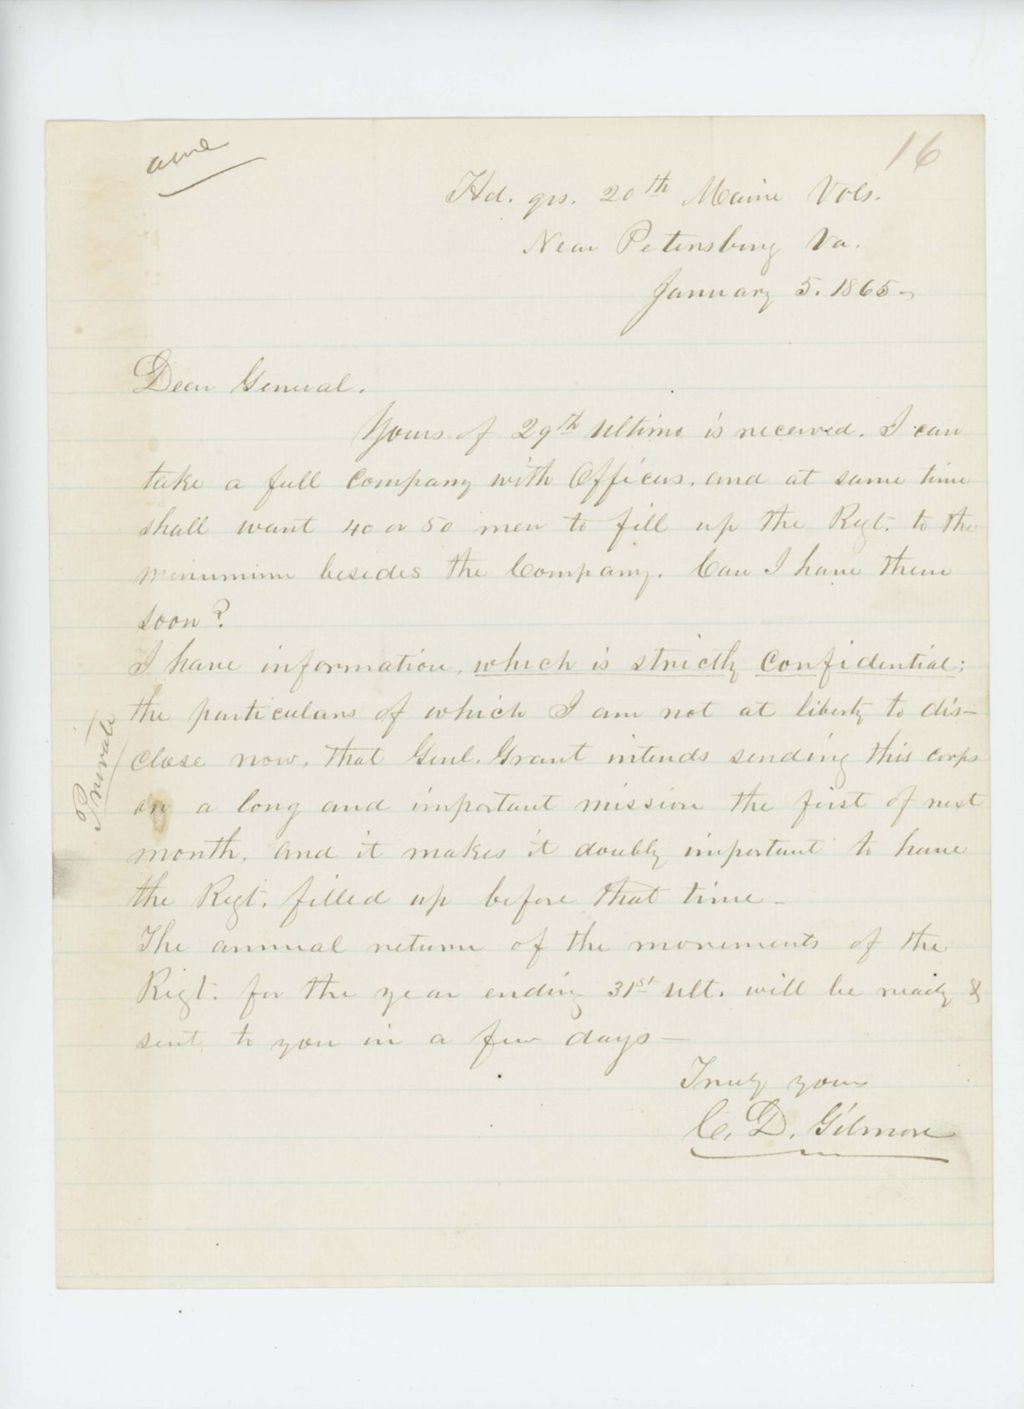 16
Hd. qrs. 20th Maine Vols.
Near Petersburg Va.
January 5. 1865-
Dear General.
Yours of 29th Ultimo is received. I can
take a full Company with Officers, and at same time
shall want 40 or 50 men to fill up the Regt. to the
minumimn besides the Company. Can I have them
soon?
I have information, which is strictly confidential;
the particulars of which I am not at liberty to dis-
close now, that Genl. Grant intends sending this corps
on a long and important mission the first of next
month, and it makes it doubly important to have
the Regt. filled up before that time -
The annual return of the movements of the
Regt. for the year ending 31st ult. will be ready &
sent to you in a few days -
Truly yours
C. D. Gilmore
Private